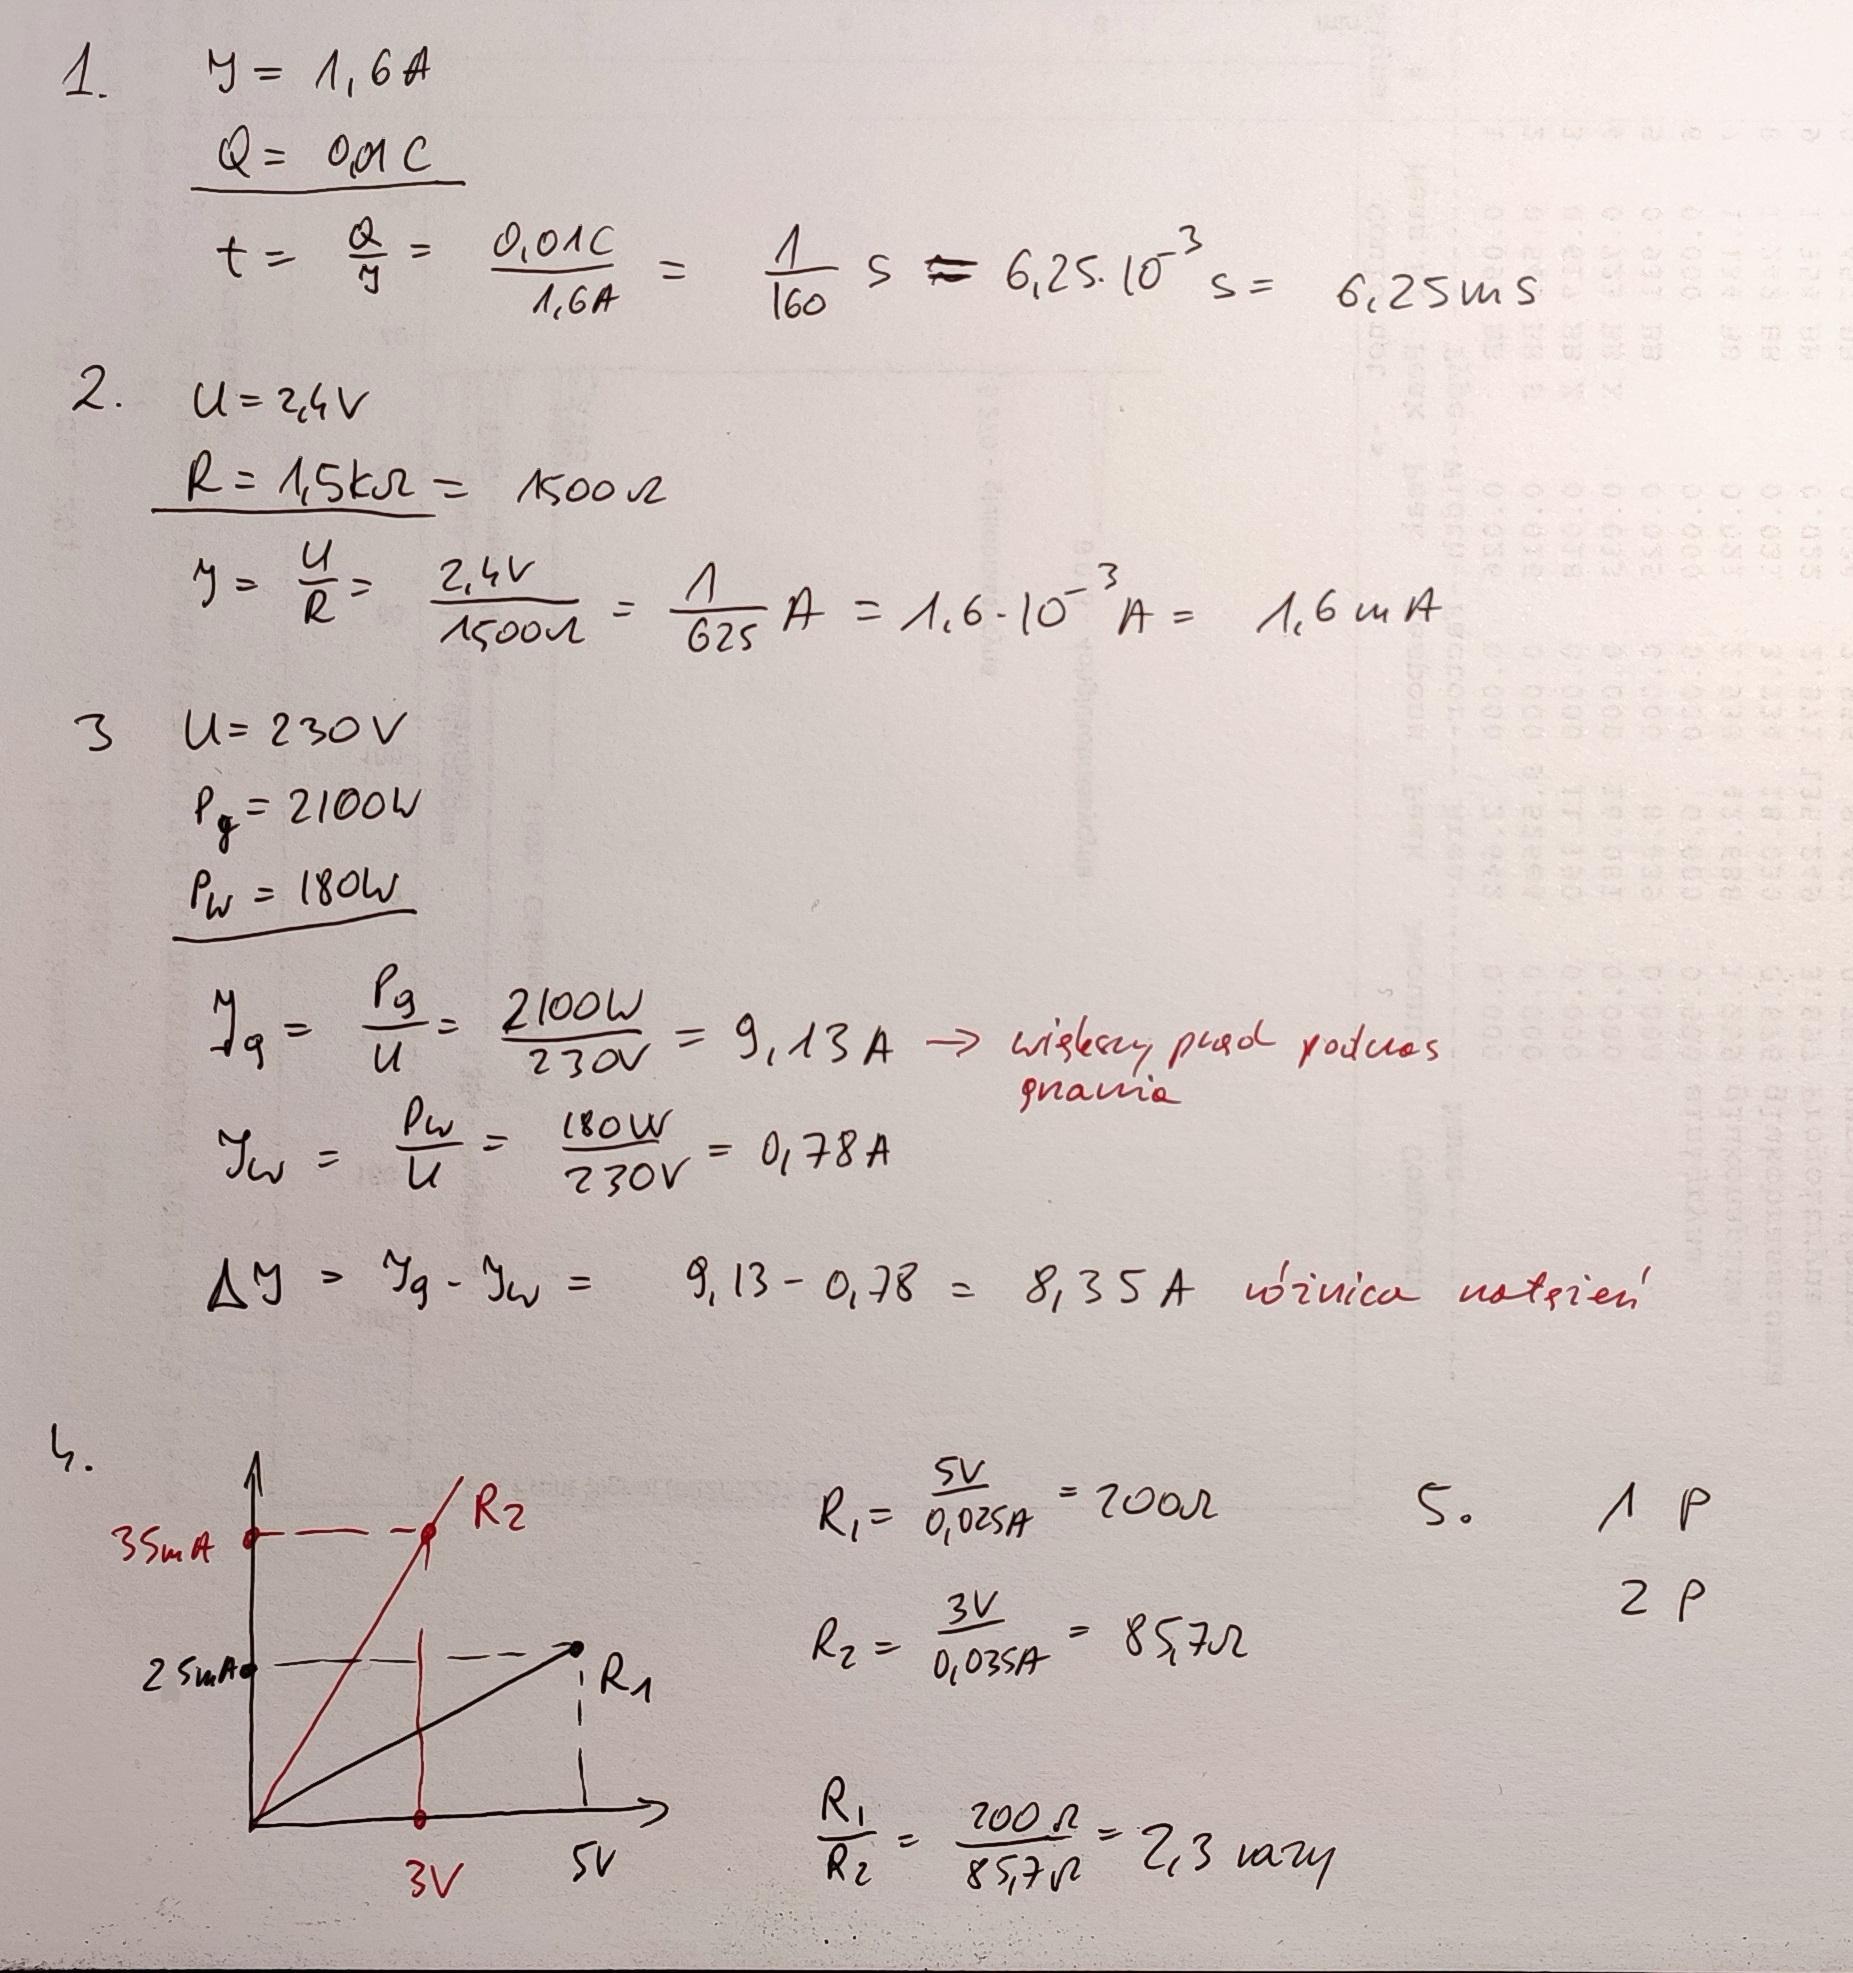 1. I = 1,6 A
Q = 0,01 C
t = Q/I = 0,01C/1,6A = 1/160 s = 6,25·10⁻³ s = 6,25 ms
2. U = 2,4V
R = 1,5kΩ = 1500Ω
I = U/R = 2,4V/1500Ω = 1/625 A = 1,6·10⁻³ A = 1,6 mA
3 U = 230V
Pg = 2100W
Pw = 180W
Ig = Pg/U = 2100W/230V = 9,13 A → większy prąd podczas
grzania
Iw = Pw/U = 180W/230V = 0,78 A
ΔI = Ig - Iw = 9,13 - 0,78 = 8,35 A różnica natężeń
4.
35mA
R2
25mA
R1
3V
5V
R₁ = 5V/0,025A = 200Ω
R₂ = 3V/0,035A = 85,7Ω
R₁/R₂ = 200Ω/85,7Ω = 2,3 razy
5. 1 P
2 P